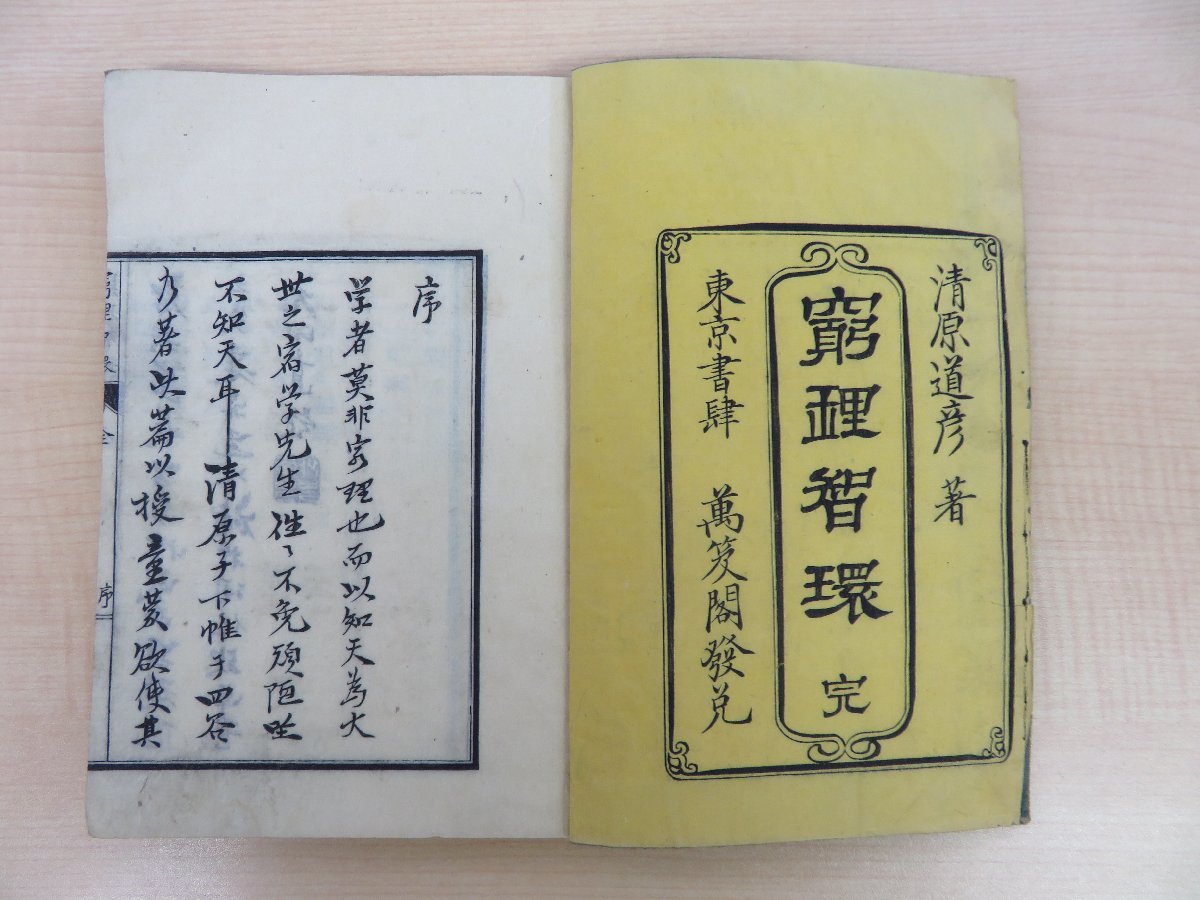 清原道彦 著
窮理智環 完
東京書肆 萬笈閣發兌
序
学者莫非窮理也而以知天為大
世之宿学先生往〻不免頑陋坐
不知天耳清原子下帷于四谷
乃著此篇以授童蒙欲使其
窮理智環 全 序